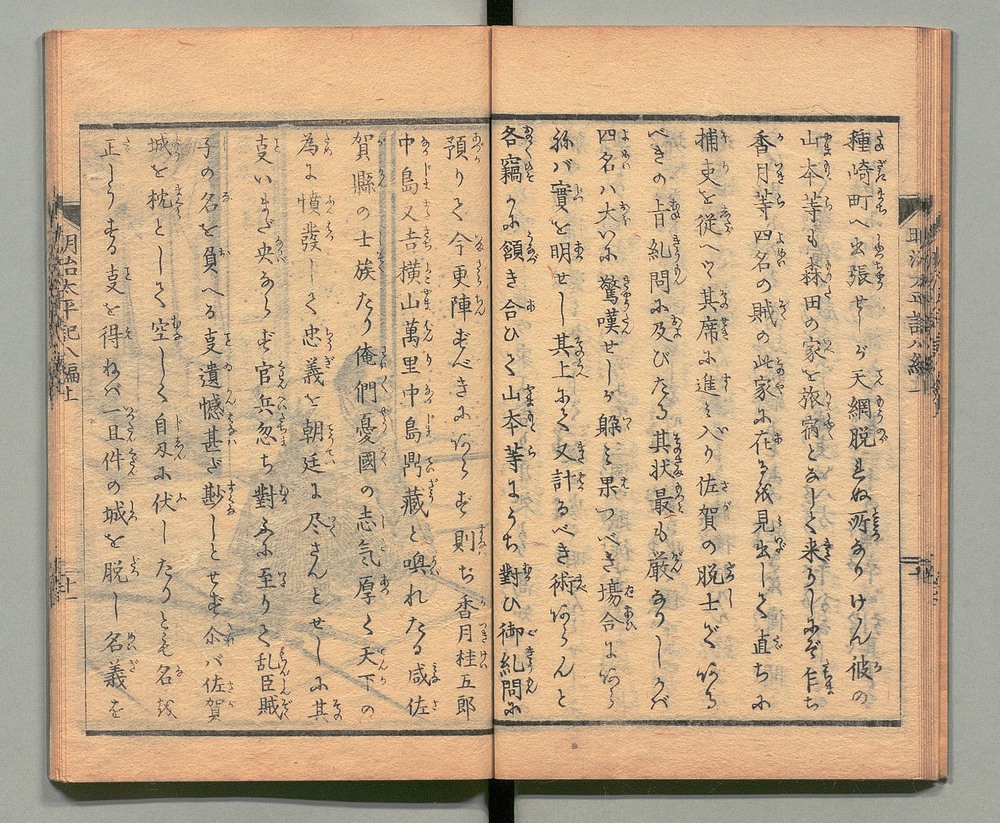 種崎町へ出張せしが天網脱れぬ所なりけん彼の
山本等も森田の家を旅宿となして来りしにぞ乍ち
香月等四名の賊の此家に在るを見出して直ちに
捕吏を従へツヽ其席に進み入り佐賀の脱士ぞある
べきの旨糺問に及びたる其状最も厳なりしかバ
四名ハ大いに驚嘆せしが躱み果つべき場合にあら
ねバ實を明せし其上にて又計るべき術あらんと
各竊かに頷き合ひて山本等にうち對ひ御糺問に
預りて今更陣ずべきにあらず則ち香月桂五郎
中島又吉横山萬里中島鼎藏と喚れたる咸佐
賀縣の士族たり俺們憂國の志気厚く天下の
為に憤發して忠義を朝廷に尽さんとせしに其
支いまだ央ならず官兵忽ち對ふに至りて乱臣賊
子の名を負へる支遺憾甚だ尠しとせず尓バ佐賀
城を枕として空しく自刃に伏したりとも名を
正しうする支を得ねバ一旦件の城を脱し名義を
明治太平記八編上